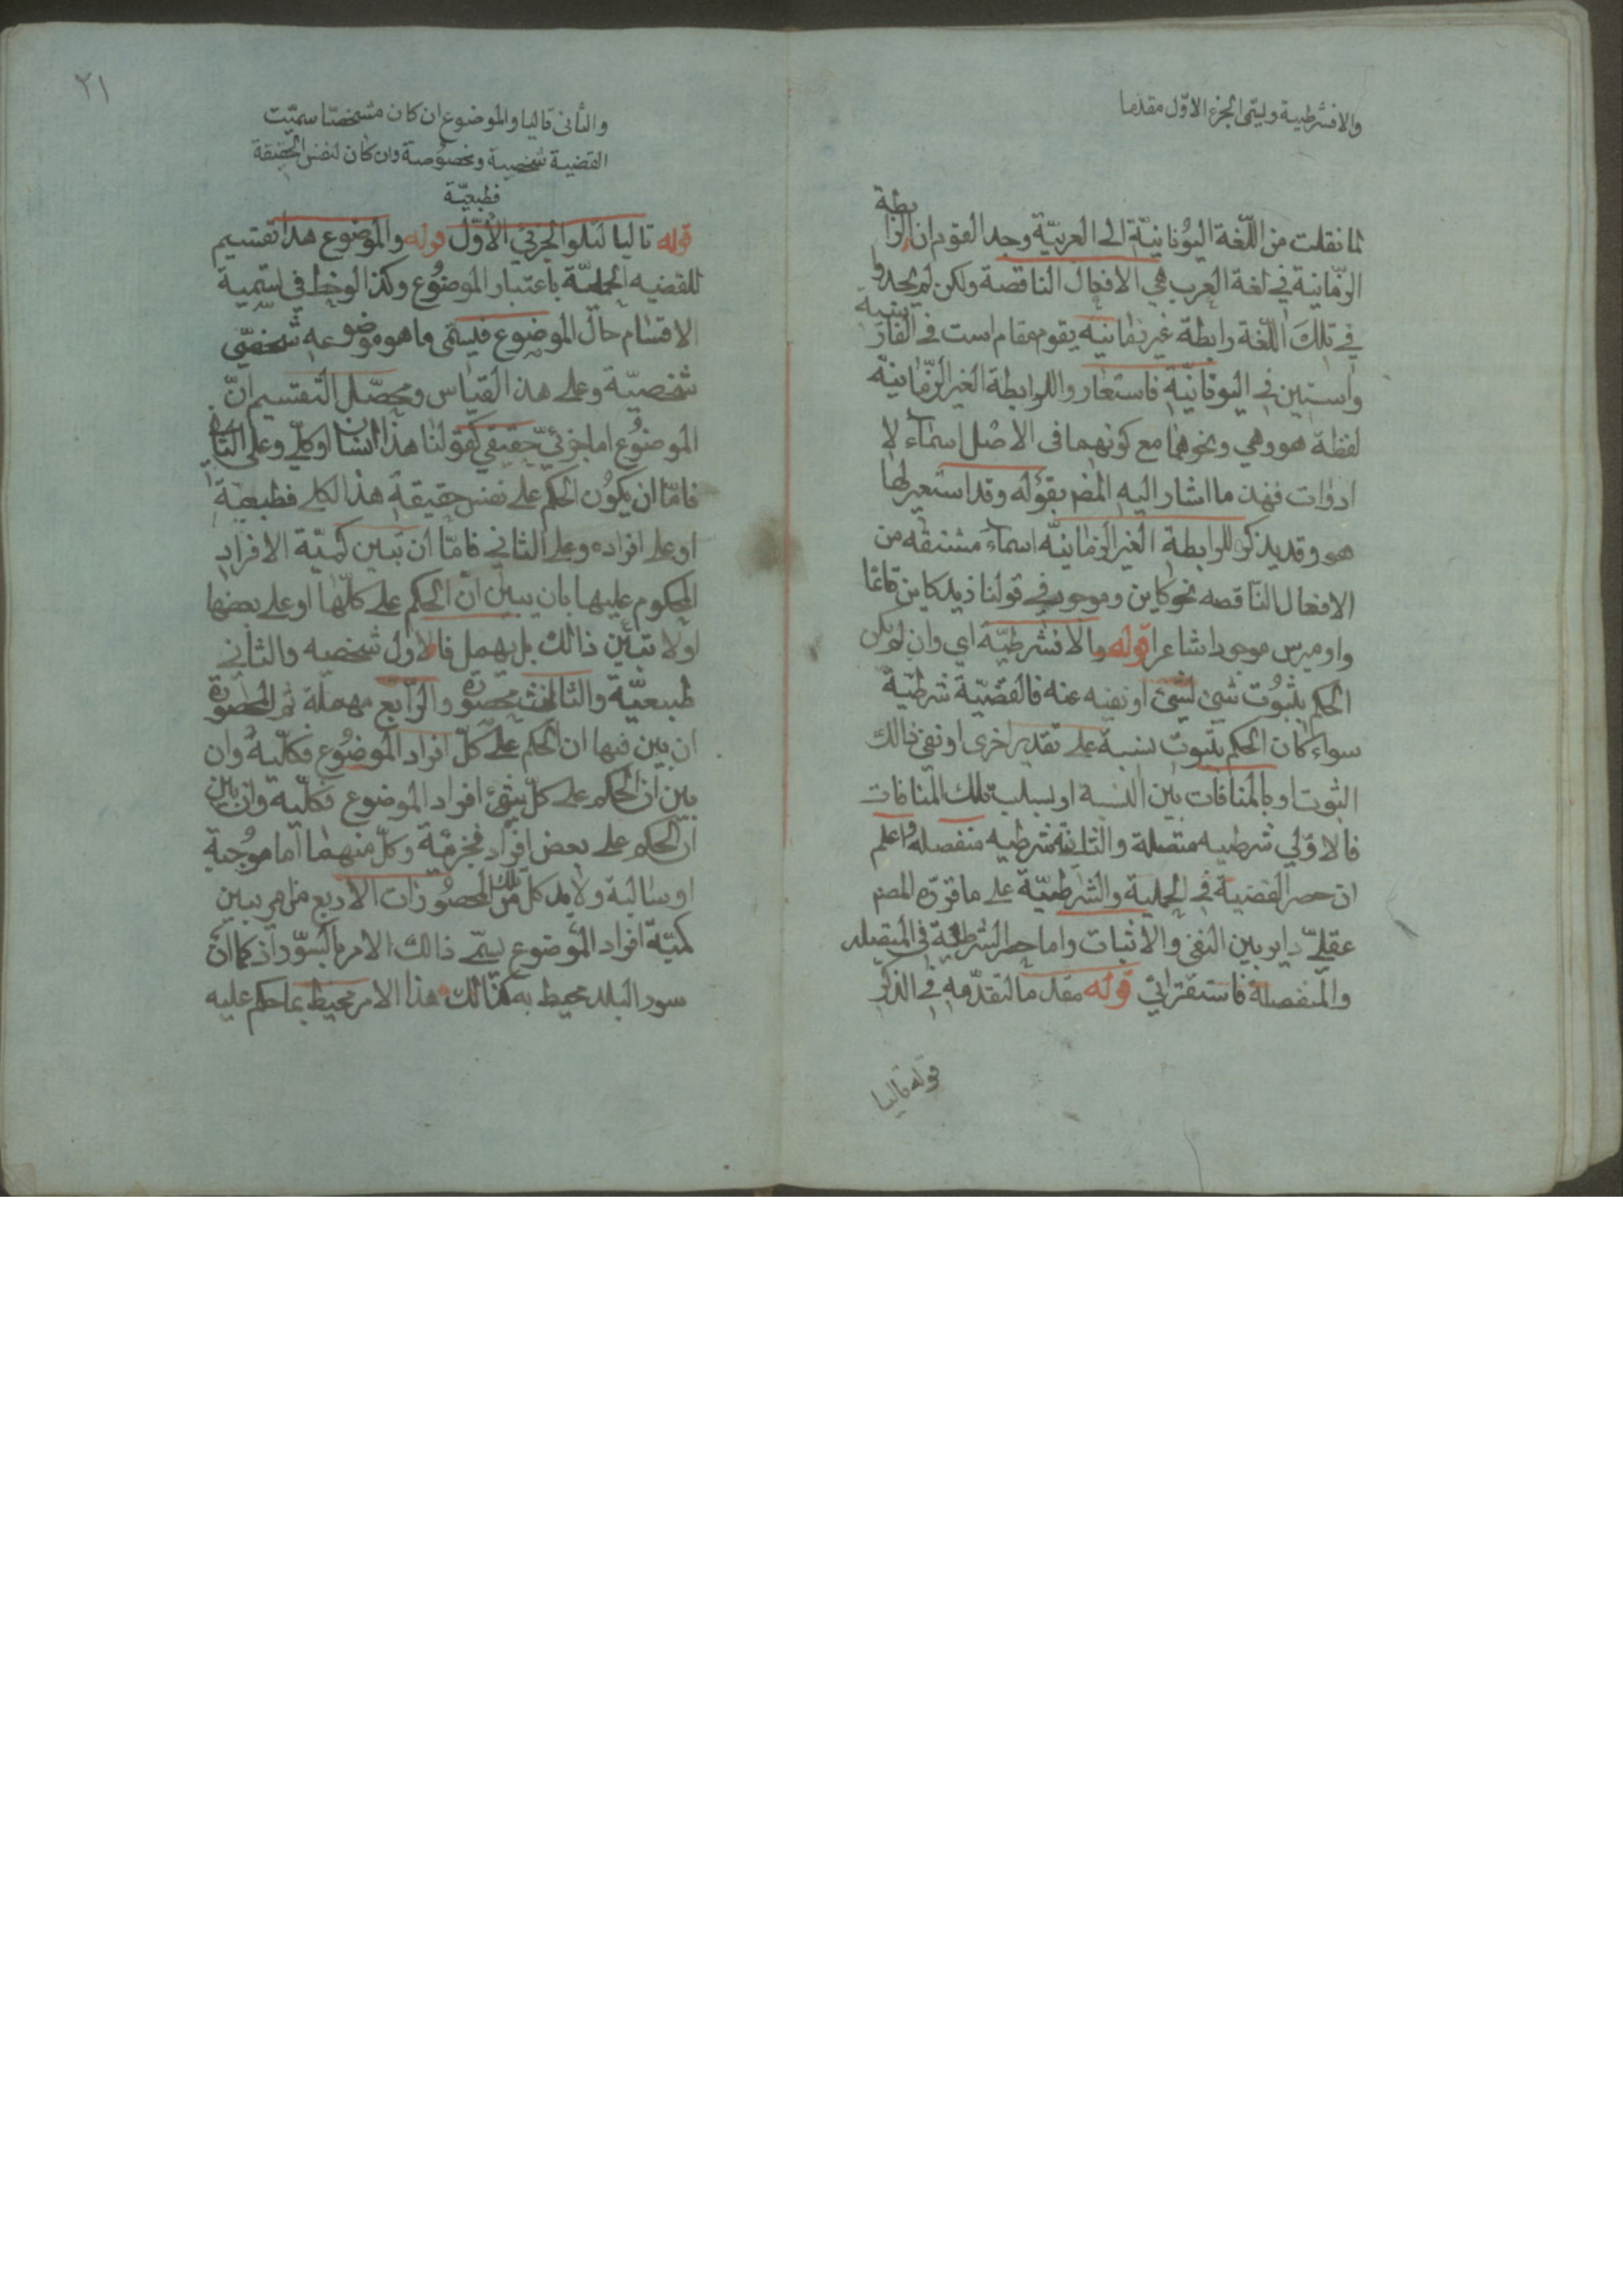 والافشرطية ويسمى الجزء الاوّل مقدما
لما نقلت من اللّغة اليُونانيّة الى العربيّة وجد القوم ان الرابطة
الزّمانية في لغة العرب هي الافعال الناقصة ولكن لم يجدوا
في تلك اللّغة رابطة غير زمانيّه يقوم مقام است في الفارسية
واستين في اليونانيّة فاستعاروا للرابطة الغير الزّمانيّة
لفظة هو وهي ونحوهما مع كونهما في الاصل اسماء لا
ادوات فهذا ما اشار اليه المصم بقوله وقد استعير لها
هو وقد يذكر للرابطة الغير الزمانيّه اسماء مشتقه من
الافعال الناقصه نحو كاين وموجود في قولنا زيد كاين قائما
واوميرس موجود شاعرا قوله والا فشرطيّة اي وان لم يكن
الحكم بثبُوت شئ لشئ او نفيه عنه فالقضيّة شرطيّة
سواء كان الحكم بثبوت نسبة على تقدير اخرى او نفي ذالك
الثبوت او بالمنافات بين النسبة او بسلب تلك المنافات
فالاوّلي شرطيه متصلة والثانية شرطيه منفصله واعلم
ان حصر القضية في الحملية والشرطيّة على ما قرّره المصم
عقليّ داير بين النفي والاثبات واما حصر الشرطيّة في المتصله
والمنفصلة فاستقرائي قوله مقدما لتقدّمه في الذكر
قوله تاليا
٢١
والثانى تاليا والموضوع ان كان مشخصّا سميّت
القضية شخصية ومخصوصة وان كان لنفس الحقيقة
فطبعيّة
قوله تاليا لتلوا الجزئي الاوّل قوله والموضوع هذا تقسيم
للقضيه الحمليّة باعتبار الموضُوع وكذا لوحظ في تسمية
الاقسام حال الموضوع فيسمّى ما هو موضوعه شخصيّ
شخصيّة وعلى هذا القياس ومحصّل التقسيم انّ
الموضوُع اما جزئيّ حقيقي كقولنا هذا انسان او كليّ وعلى الثاني
فامّا ان يكوُن الحكم على نفس حقيقة هذا الكلي فطبعيّة
او على افراده وعلى الثاني فامّا ان تبين كميّة الافراد
المحكوم عليها بان يبين ان الحكم على كلّها او على بعضها
او لا تبيّن ذالك بل يهمل فالاول شخصيه والثاني
طبيعيّة والثالث محصورة والرّابع مهملة ثم المحصورة
ان بين فيها ان الحكم على كلّ افراد الموضُوع فكلّية وان
بين ان الحكم على كلّ شئ افراد الموضوع فكلّية وان بين
ان الحكم على بعض افراد فجزئيّة وكلّ منهما اما موُجبة
او سالبة ولابد كل من تلك المحصُورات الاربع من امر يبين
كميّة افراد الموضوع يسمّى ذالك الامر بالسّور اذ كما انّ
سور البلد محيط به كذالك هذا الامر محيط بما حكم عليه